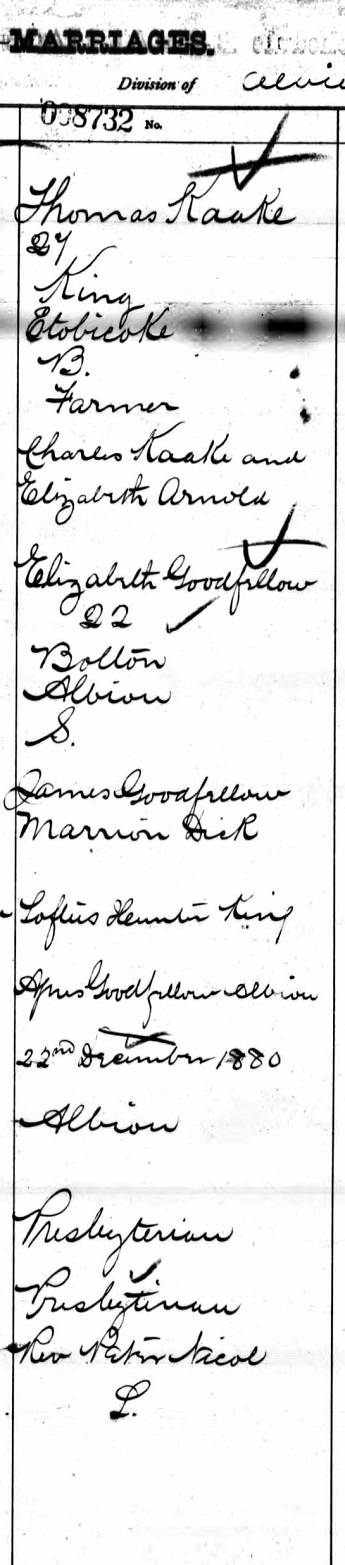 MARRIAGES.
Division of Albion
008732 No.
Thomas Kaake
27
King
Etobicoke
B.
Farmer
Charles Kaake and
Elizabeth Arnold
Elizabeth Goodfellow
22
Bolton
Albion
S.
James Goodfellow
Marrion Dick
Loftus Hunter King
Agnes Goodfellow Albion
22nd December 1880
Albion
Presbyterian
Presbyterian
Rev Peter Nicol
L.